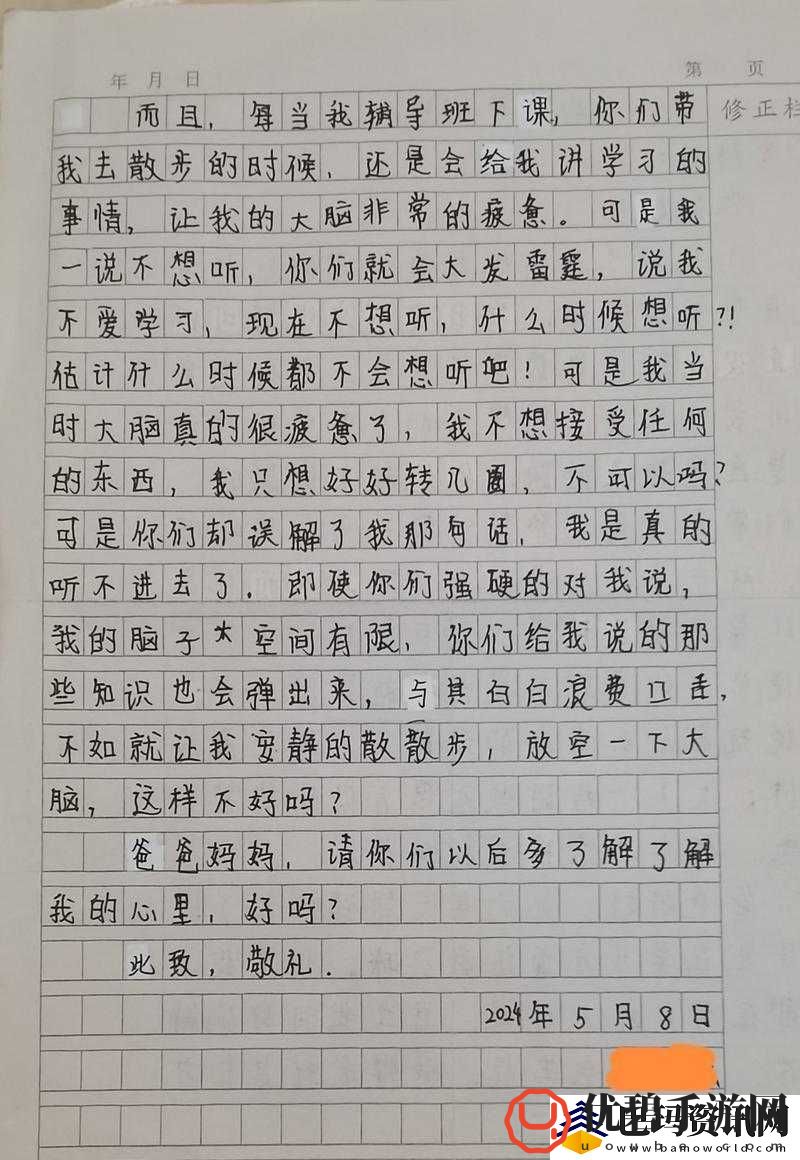 年 月 日
第 页
修正栏
而且，每当我辅导班下课，你们带
我去散步的时候，还是会给我讲学习的
事情，让我的大脑非常的疲惫。可是我
一说不想听，你们就会大发雷霆，说我
不爱学习，现在不想听，什么时候想听?!
估计什么时候都不会想听吧！可是我当
时大脑真的很疲惫了，我不想接受任何
的东西，我只想好好转几圈，不可以吗？
可是你们却误解了我那句话，我是真的
听不进去了．即使你们强硬的对我说，
我的脑子 空间有限，你们给我说的那
些知识也会弹出来，与其白白浪费口舌，
不如就让我安静的散散步，放空一下大
脑，这样不好吗？
爸爸妈妈，请你们以后多了解了解
我的心里，好吗？
此致，敬礼．
2024年5月8日
优碧手游网
www.bamoworld.com